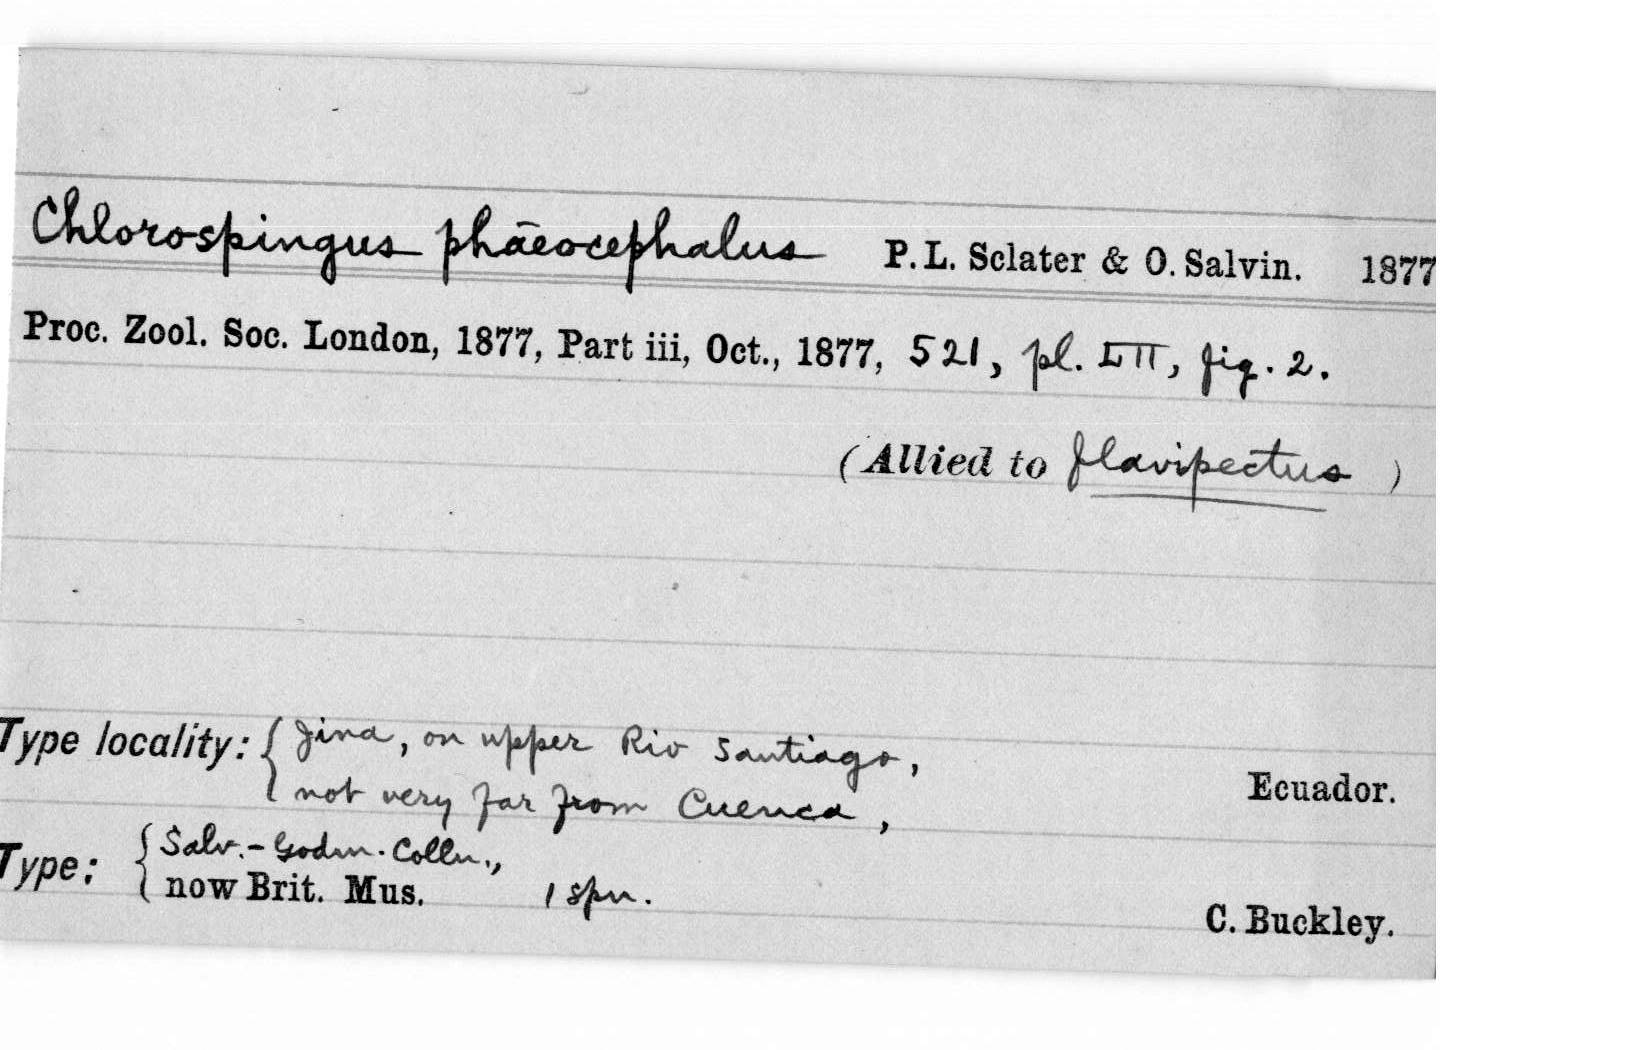 Chlorospingus phāeocephalus P. L. Sclater & O. Salvin. 1877
Proc. Zool. Soc. London, 1877, Part iii, Oct., 1877, 521, pl. LII, fig. 2.
(Allied to flavipectus )
Type locality: { Jima, on upper Rio Santiago,
not very far from Cuenca, Ecuador.
Type: { Salv.-Godm. Colln.,
now Brit. Mus. 1 spn. C. Buckley.